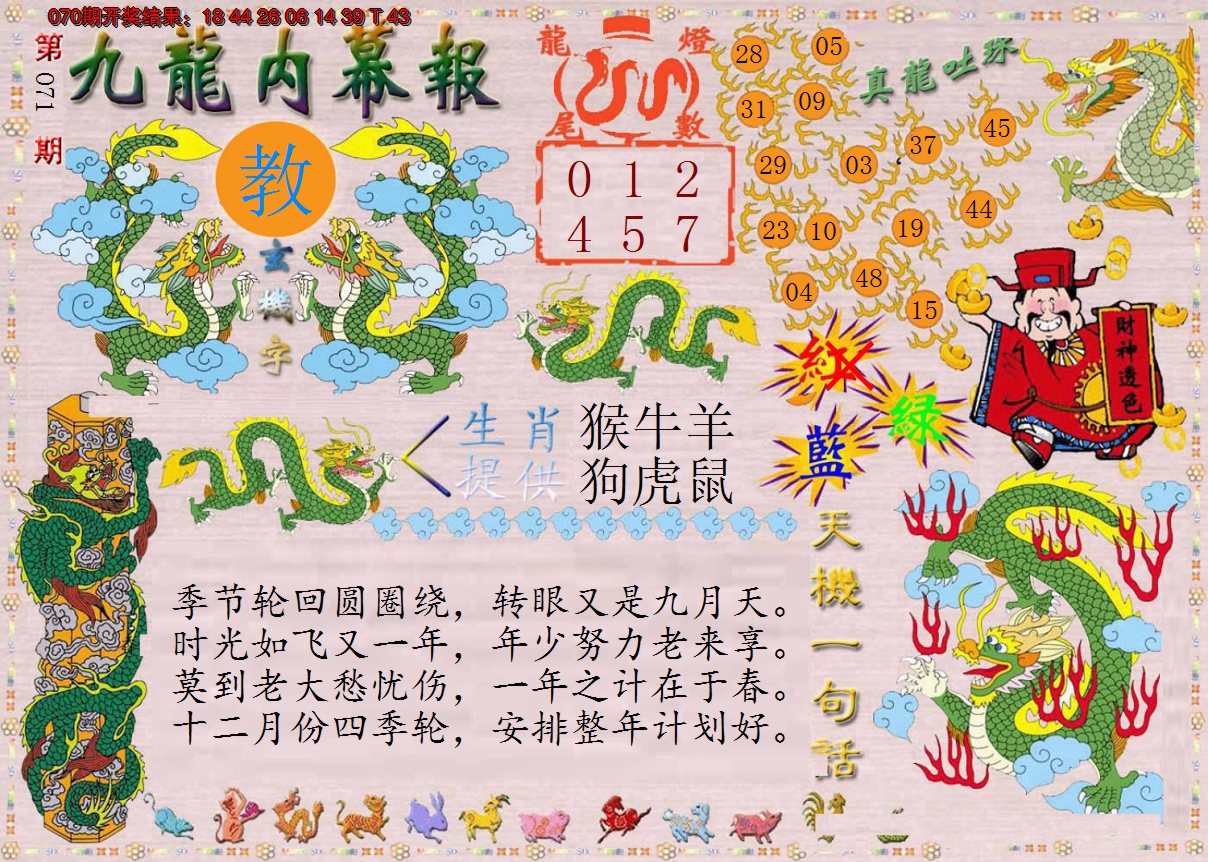 070期开奖结果：18 44 26 06 14 39 T 43
第071期
九龍内幕報
教
玄機字
龍燈
尾數
0 1 2
4 5 7
28 05
31 09
29 03 37 45
23 10 19 44
04 48 15
真龍吐珠
財神透色
紅
綠
藍
生肖 猴牛羊
提供 狗虎鼠
天機一句話
季节轮回圆圈绕，转眼又是九月天。
时光如飞又一年，年少努力老来享。
莫到老大愁忧伤，一年之计在于春。
十二月份四季轮，安排整年计划好。